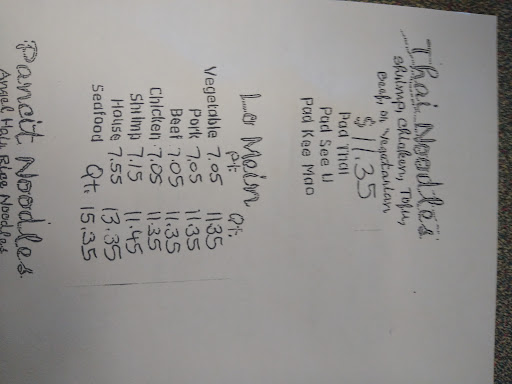 Thai Noodles
Shrimp, Chicken, Tofu,
Beef, or Vegetarian
$11.35
Pad Thai
Pad See U
Pad Kee Mao
Lo Mein
Pt. Qt.
Vegetable 7.05 11.35
Pork 7.05 11.35
Beef 7.05 11.35
Chicken 7.05 11.35
Shrimp 7.15 11.45
House 7.55 13.35
Seafood Qt. 15.35
Pancit Noodles
Angel Hair Rice Noodles